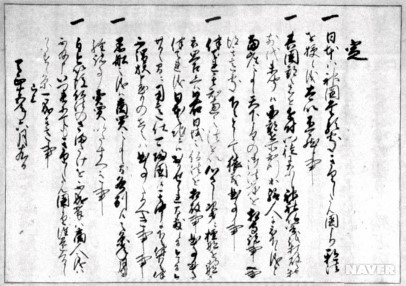 定
一 日本ハ神国たる処きりしたん国より邪法
を授候儀太以不可然候事
一 其国郡之者を近付門徒になし神社仏閣を打破
之由前代未聞候国郡在所知行等給人に被下候儀者
当座之事候天下よりの御法度を相守諸事
可得其意処下々として猥義曲事事
一 伴天連其知恵之法を以心さし次第に檀那を持
候と被思召候へハ如右日域之仏法を相破事曲事候条
伴天連儀日本之地ニハおかせられ間敷候間今日より
廿日之間に用意仕可帰国候其中に下々伴天連
に不謂族申懸もの在之ハ曲事たるへき事
一 黒船之儀ハ商買之事候間各別候之条年月を
経諸事売買いたすへき事
一 自今以後仏法のさまたけを不成輩ハ商人之儀は
不及申いつれにてもきりしたん国より往還くるし
からす候条可成其意事
已上
天正十五年六月十九日
NAVER